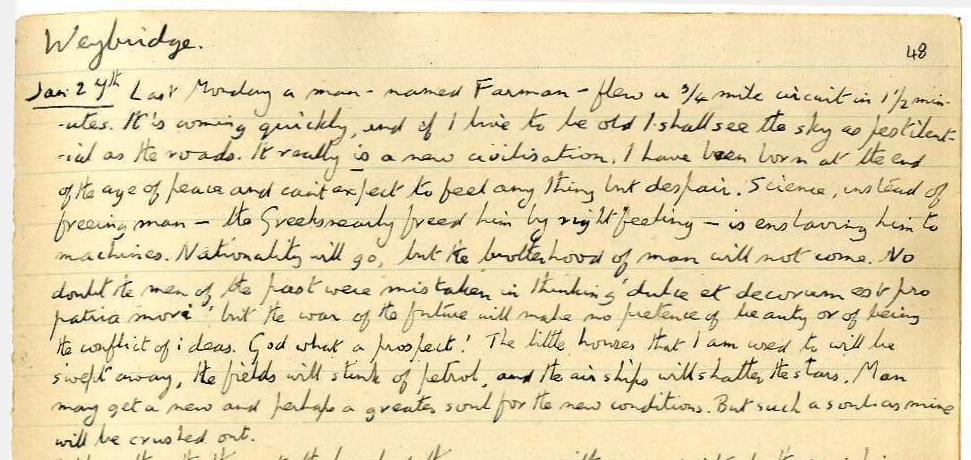 Weybridge.
48
Jan 27th Last Monday a man - named Farman - flew a 3/4 mile circuit in 1 1/2 min-
-utes. It's coming quickly, and if I live to be old I shall see the sky as pestilent-
-ial as the roads. It really is a new civilisation. I have been born at the end
of the age of peace and can't expect to feel any thing but despair. Science, instead of
freeing man — the Greeks nearly freed him by right feeling — is enslaving him to
machines. Nationality will go, but the brotherhood of man will not come. No
doubt the men of the past were mistaken in thinking 'dulce et decorum est pro
patria mori' but the war of the future will make no pretence of beauty or of being
the conflict of ideas. God what a prospect! The little houses that I am used to will be
swept away, the fields will stink of petrol, and the air ships will shatter the stars. Man
may get a new and perhaps a greater soul for the new conditions. But such a soul as mine
will be crushed out.